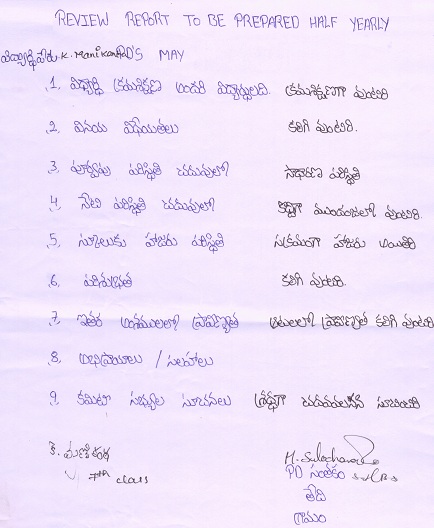 REVIEW REPORT TO BE PREPARED HALF YEARLY
విద్యార్థి పేరు K. Manikanta PD'S MAY
1. విద్యార్థి క్రమశిక్షణ అందరి విద్యార్థులది. క్రమశిక్షణగా వుంటాడు
2. వినయ విధేయతలు కలిగి వుంటాడు.
3. పూర్వపు పరిస్థితి చదువులో సాధారణ పరిస్థితి
4. నేటి పరిస్థితి చదువులో కొద్దిగా ముందంజలో వుంటాడు.
5. స్కూలుకు హాజరు పరిస్థితి సక్రమంగా హాజరు
6. పరిశుభ్రత కలిగి వుంటాడు.
7. ఇతర అంశములలో ప్రావిణ్యత ఆటలలో ప్రావిణ్యత కలిగి వుంటాడు
8. అభిప్రాయాలు / సలహాలు
9. కమిటి సభ్యుల సూచనలు శ్రద్ధగా
కె. మణికంఠ
7th class
M. Sulochana
PD సంతకం
తేది
గ్రామం